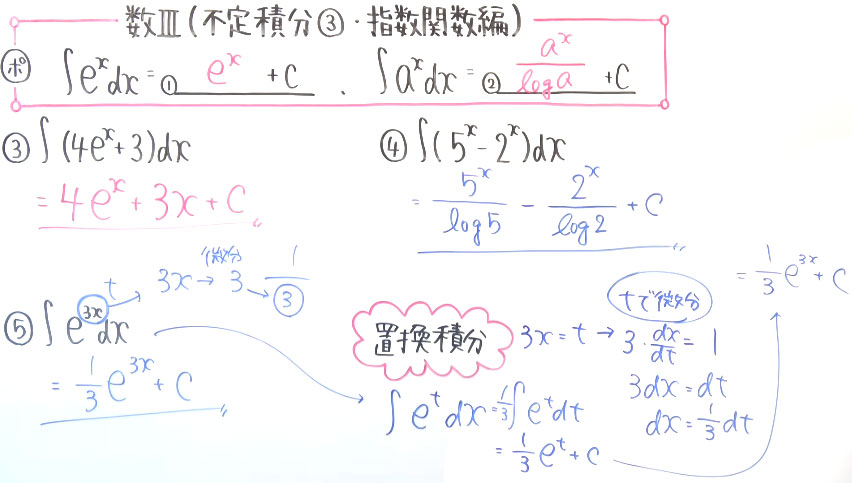 数Ⅲ(不定積分③・指数関数編)
ポ ∫e^x dx = ① e^x + C 、 ∫a^x dx = ② a^x/log a + C
③ ∫(4e^x+3)dx
= 4e^x + 3x + C
④ ∫(5^x - 2^x)dx
= 5^x/log5 - 2^x/log2 + C
t 3x → 3 → 1/3
微分
⑤ ∫e^{3x}dx
= 1/3 e^{3x} + C
置換積分
tで微分
3x = t → 3・dx/dt = 1
3dx = dt
dx = 1/3 dt
∫e^t dx = 1/3∫e^t dt
= 1/3 e^t + C
= 1/3 e^{3x} + C